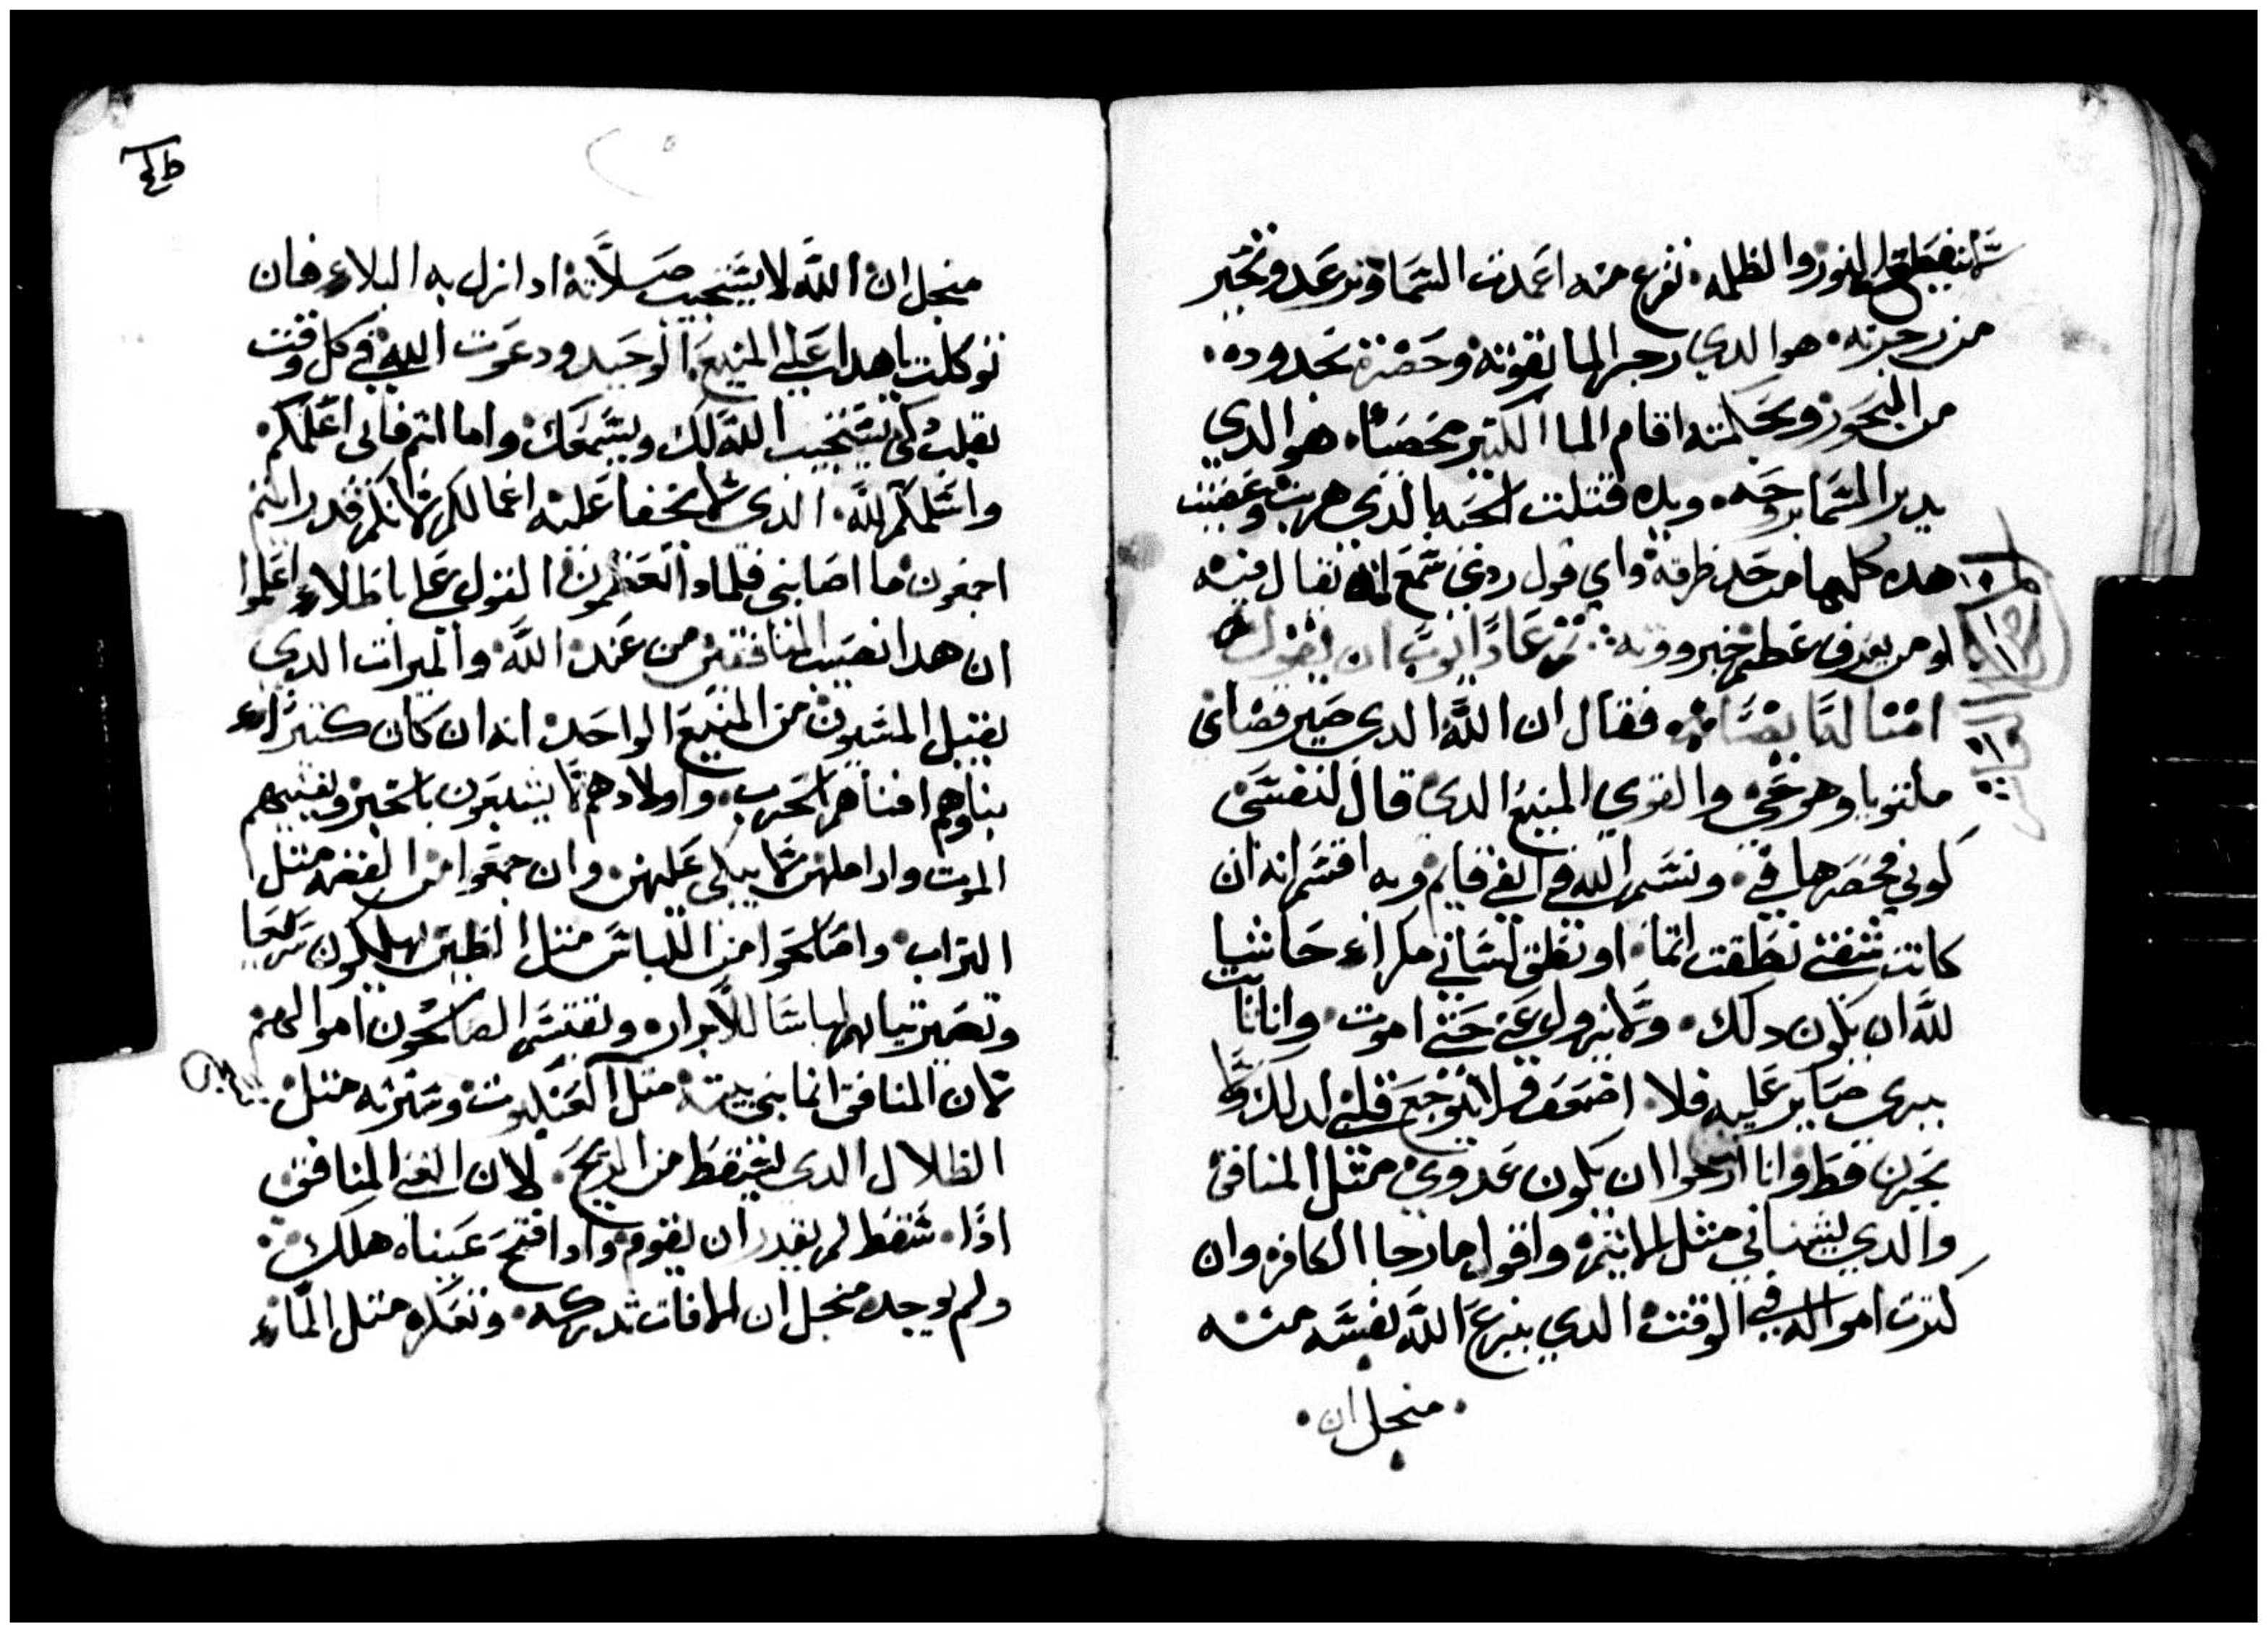 والظلمه. تفزع منه اعمدت السما وترعد وتخبر
من زجرته. هو الدي زجر الما بقوته وحصره بحدوده.
من البحور وبحكمته اقام الما الكتير محصنا. هو الدي
يدبر السما بروحه. وبيده قتلت الحيه الدي هربت وعصيت
هده كلها من حد طرقه واي قول ردي سمع انه يقال فيه
او من يعرف عظم خبرووته. تم عاد ايوب ان يقول
امتالها فقال ان الله الدي صير قضاي
ملتويا وهو حي والقوي المنيع الدي قال لنفسي
كوني ونسم الله في انفي قايم وبه اقسم انه ان
كانت شفتي نطقت اتما. او نطق لساني مكراء حاشيا
لله ان يكون دلك. ولا يزول عني حتي اموت. وانا
ببري صابر عليه فلا اضعف ولا يتوجع قلبي لدلك ولا
بحزن قط وانا ارجوا ان يكون عدوي متل المنافق
والدي يشناني متل الاتيم. واقول ما رجا الكافر وان
كترت امواله في الوقت الدي ينزع الله نفسه منه
. منجل ان .
منجل ان الله لا يستجيب صلاته ادا نزل به البلاء فان
توكلت يا هدا علي المنيع الوحيد ودعوت الله في كل وقت
بقلب كي يستجيب الله لك ويسمعك. واما انتم فاني اعلمكم
واسلمكم لله. الدي لا يخفا عليه اعمالكم لانكم قد رايتم
اجمعون ما اصابني فلمادا تعظمون القول علي باطلاء اعلموا
ان هدا نصيب المنافقين من عند الله والميرات الدي
يقبل المسيون من المنيع الواحد. انه ان كان كتيراء
بناوهم افناهم الحرب. واولادهم لا يشبعون بالخبز ويفنيهم
الموت واراملهن لا يبكي عليهن. وان جمعوا من الفضه متل
التراب. واصلحوا من اللباس متل الطين يهلكون سريعا
وتصير تيابهم لباسا للابرار. ويقتسم الصالحون اموالهم
لان المنافق انما بني بيته متل العنكبوت وسترته متل
الظلال الدي يسقط من الريح. لان الغني المنافق
ادا. سقط لم يقدر ان يقوم. وادا فتح عيناه هلك.
ولم يوجد. منجل ان الافات تدركه. وتغمره متل الماء